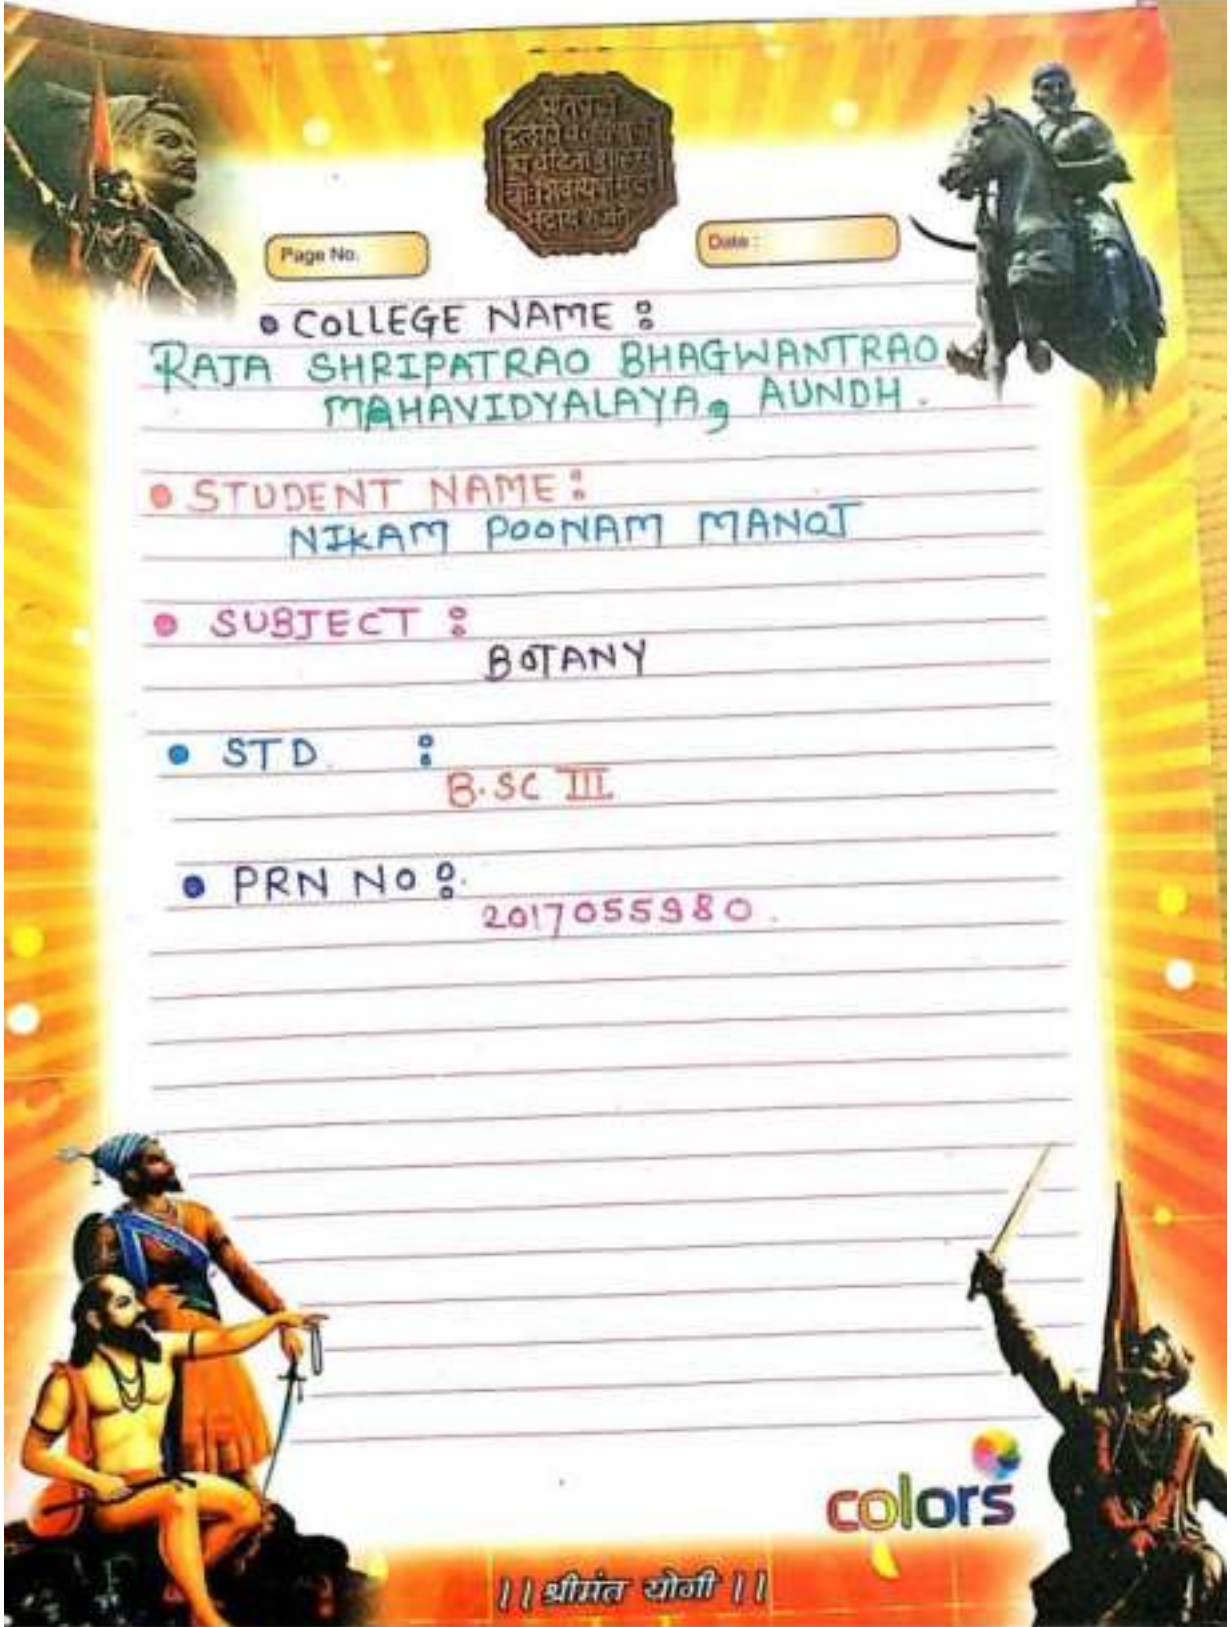 Page No.
Date :
• COLLEGE NAME :
RAJA SHRIPATRAO BHAGWANTRAO
MAHAVIDYALAYA, AUNDH.
• STUDENT NAME :
NIKAM POONAM MANOJ
• SUBJECT :
BOTANY
• STD. :
B.SC III
• PRN NO :
2017055980.
colors
||श्रीमंत योगी||